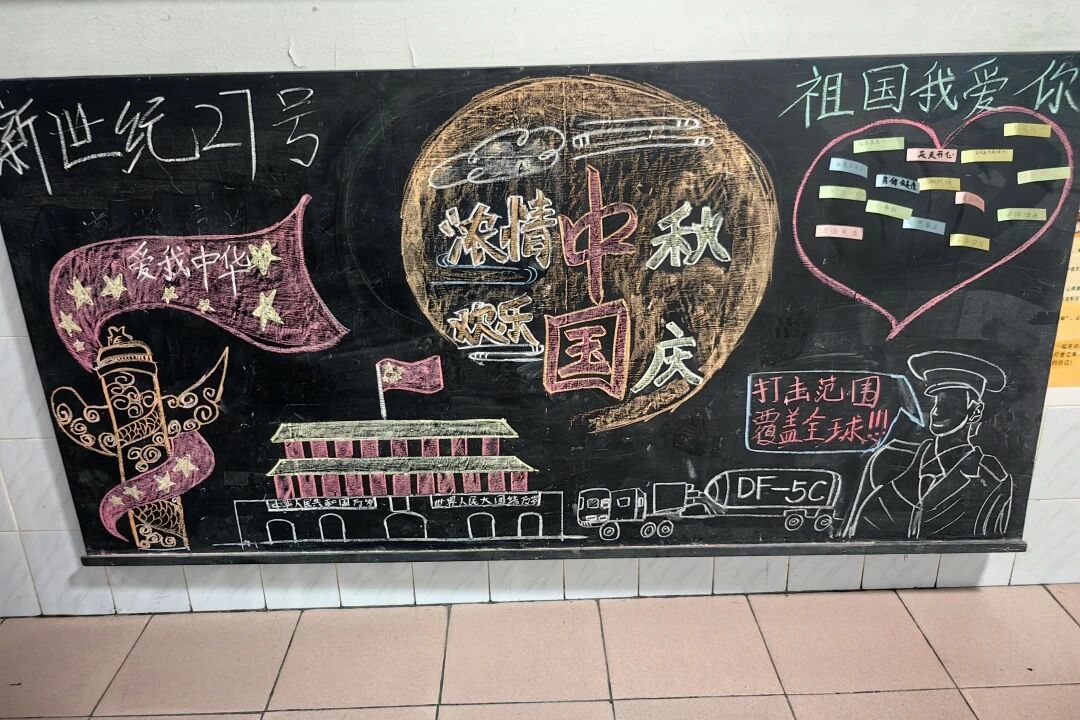 新世纪27号
祖国我爱你
爱我中华
浓情中秋
欢乐国庆
天天开心
身体健康
打击范围
覆盖全球!!!
DF-5C
中华人民共和国万岁
世界人民大团结万岁